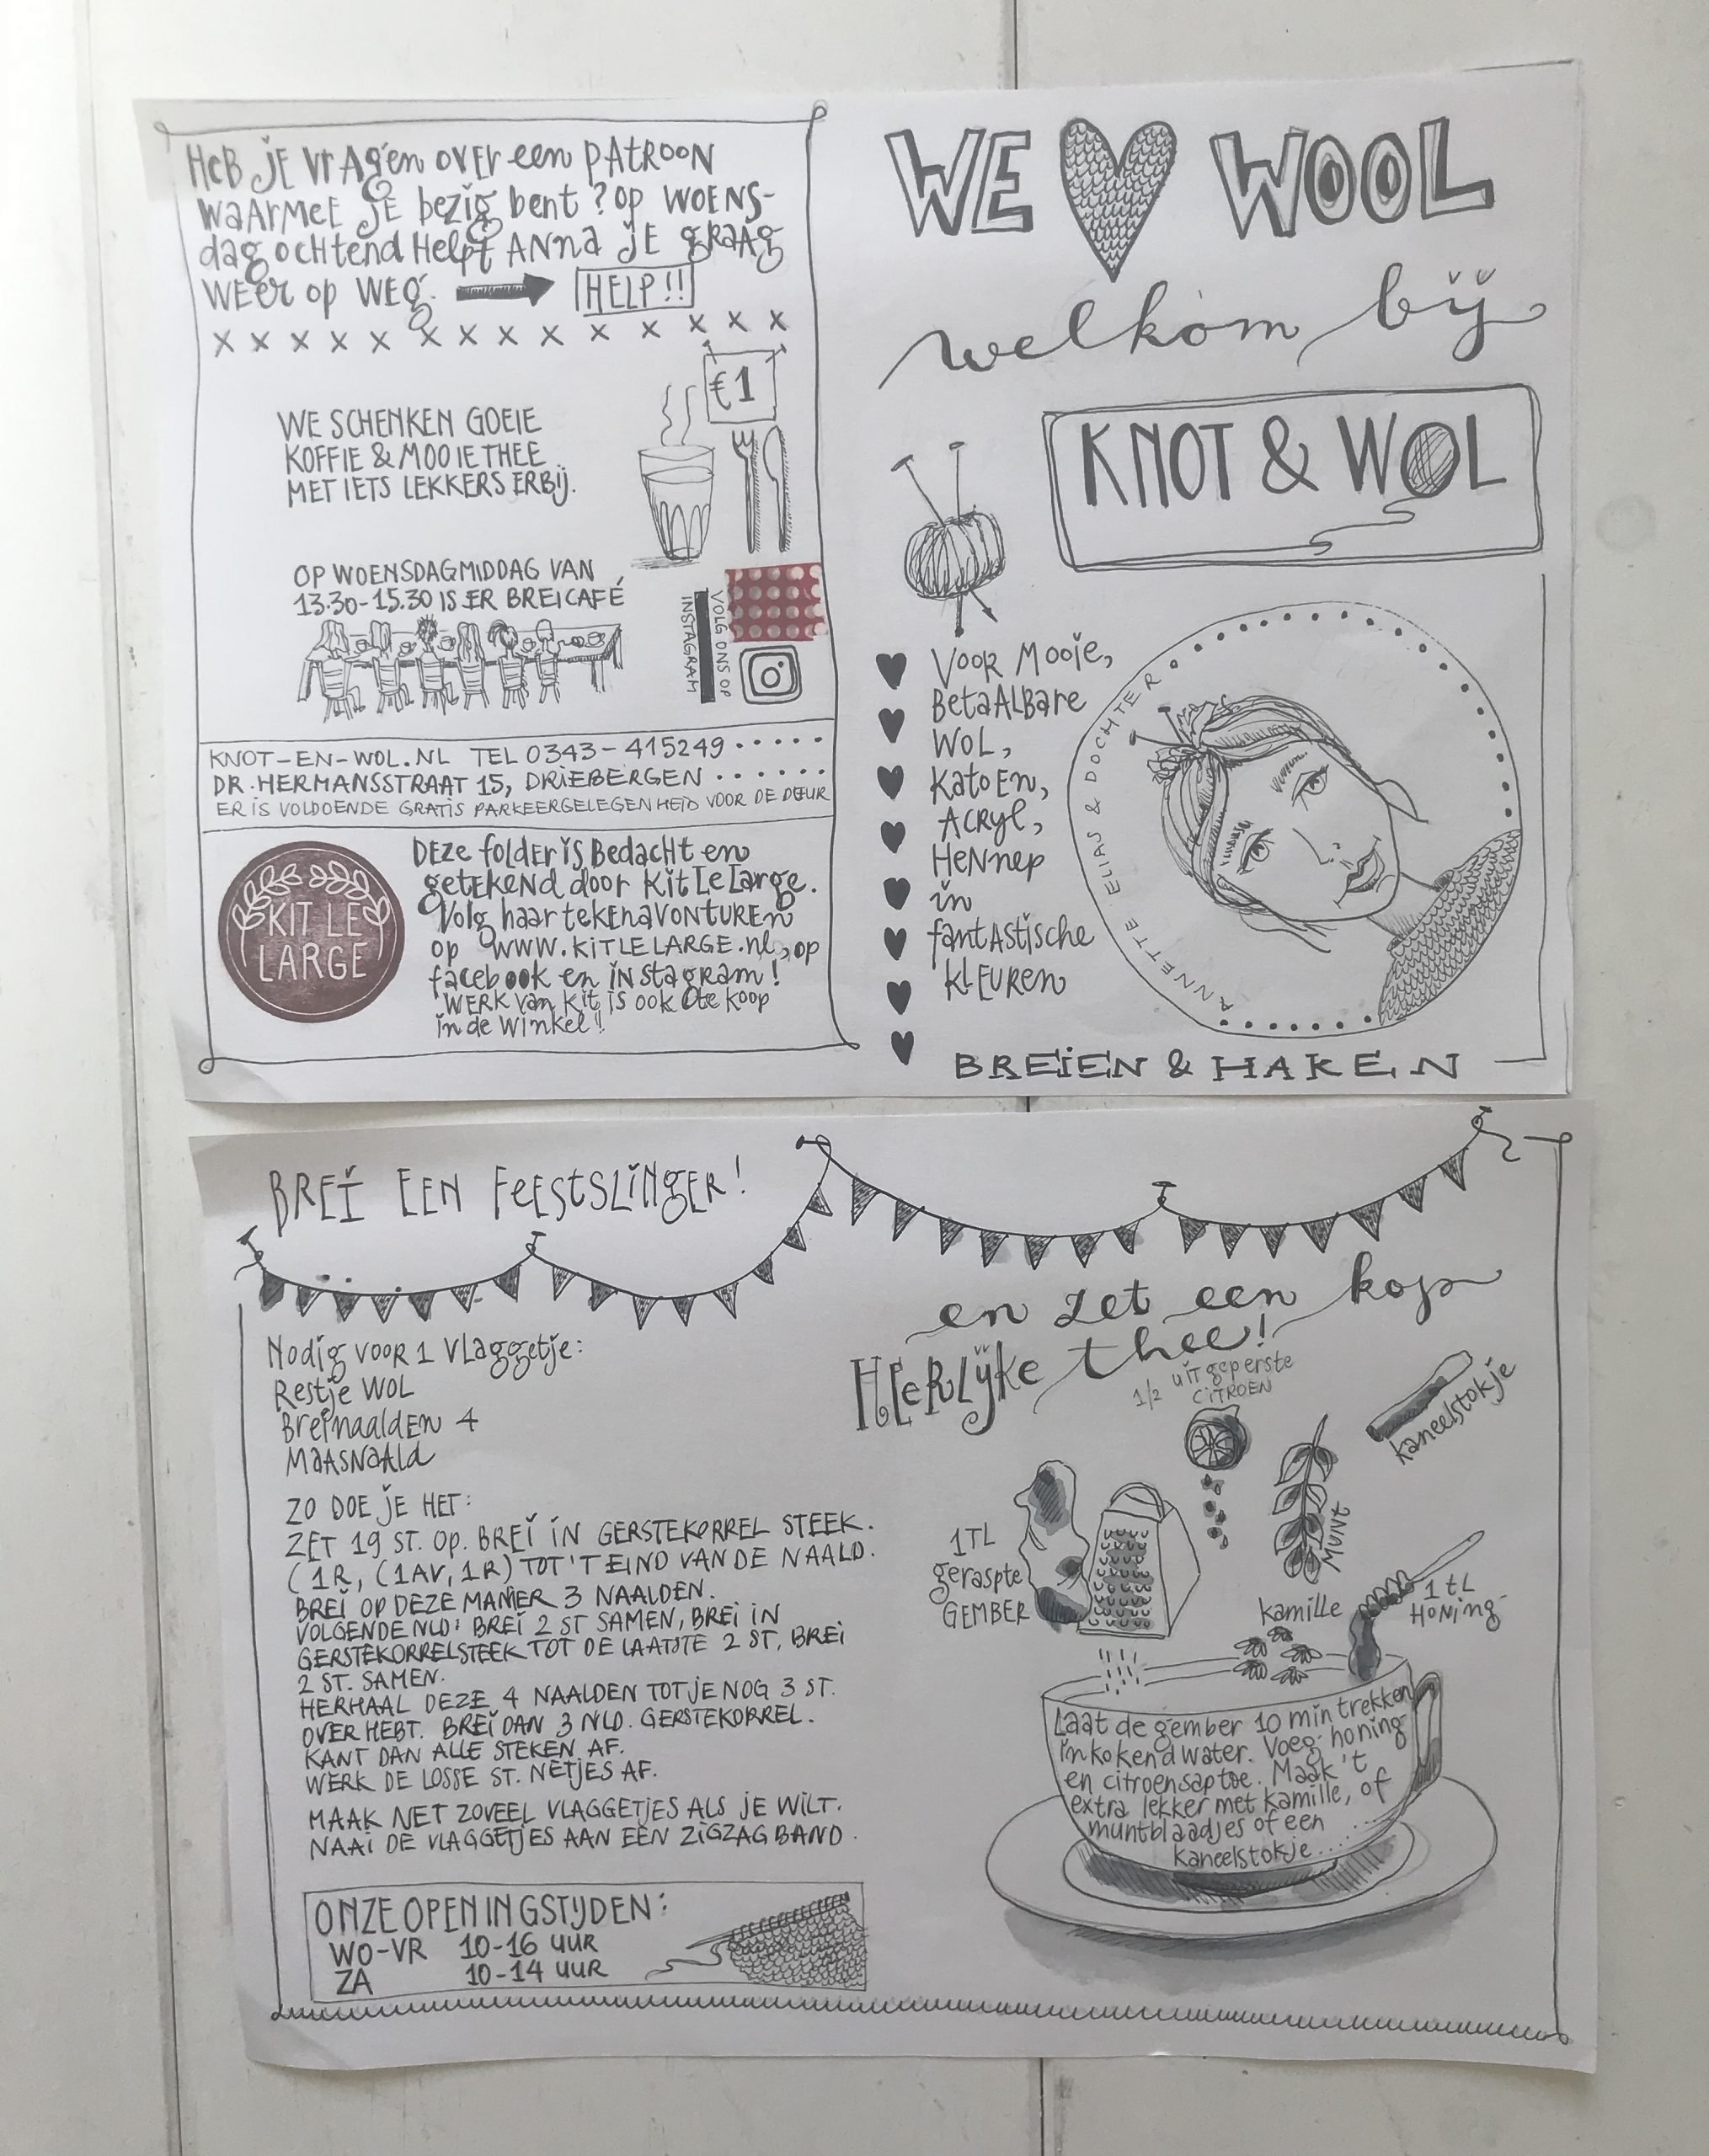 HeB je vragen over een patroon
waarmee je bezig bent? op woens-
dag ochtend helpt Anna je graag
weer op weg. HELP!!
x x x x x x x x x x x x x x
€1
WE SCHENKEN GOEIE
KOFFIE & MOOIE THEE
MET IETS LEKKERS ERBIJ.
OP WOENSDAGMIDDAG VAN
13.30-15.30 IS ER BREICAFÉ
VOLG ONS OP
INSTAGRAM
KNOT-EN-WOL.NL TEL 0343-415249
DR. HERMANSSTRAAT 15, DRIEBERGEN
ER IS VOLDOENDE GRATIS PARKEERGELEGENHEID VOOR DE DEUR
KIT LE
LARGE
Deze folder is bedacht en
getekend door Kit Le Large.
Volg haar tekenavonturen
op www.KITLELARGE.nl, op
facebook en instagram!
Werk van Kit is ook te koop
in de winkel!
WE WOOL
welkom bij
KNOT & WOL
Voor mooie,
Betaalbare
Wol,
Katoen,
Acryl,
Hennep
in
fantastische
kleuren
ANNETTE ELIAS & DOCHTER
BREIEN & HAKEN
BREI EEN FEESTSLINGER!
Nodig voor 1 vlaggetje:
Restje wol
Breinaalden 4
Maasnaald
ZO DOE JE HET:
ZET 19 ST. OP. BREI IN GERSTEKORREL STEEK.
(1R, (1AV, 1R) TOT 'T EIND VAN DE NAALD.
BREI OP DEZE MANIER 3 NAALDEN.
VOLGENDE NLD: BREI 2 ST SAMEN, BREI IN
GERSTEKORRELSTEEK TOT DE LAATSTE 2 ST, BREI
2 ST. SAMEN.
HERHAAL DEZE 4 NAALDEN TOT JE NOG 3 ST.
OVER HEBT. BREI DAN 3 NLD. GERSTEKORREL.
KANT DAN ALLE STEKEN AF.
WERK DE LOSSE ST. NETJES AF.
MAAK NET ZOVEEL VLAGGETJES ALS JE WILT.
NAAI DE VLAGGETJES AAN EEN ZIGZAG BAND.
ONZE OPENINGSTIJDEN:
WO-VR 10-16 UUR
ZA 10-14 UUR
en zet een kop
HEERLIJKE thee!
1/2 uitgeperste
CITROEN
kaneelstokje
MUNT
1TL
geraspte
GEMBER
kamille
1 tL
Honing
Laat de gember 10 min trekken
in kokend water. Voeg honing
en citroensap toe. Maak 't
extra lekker met kamille, of
muntblaadjes of een ....
kaneelstokje...